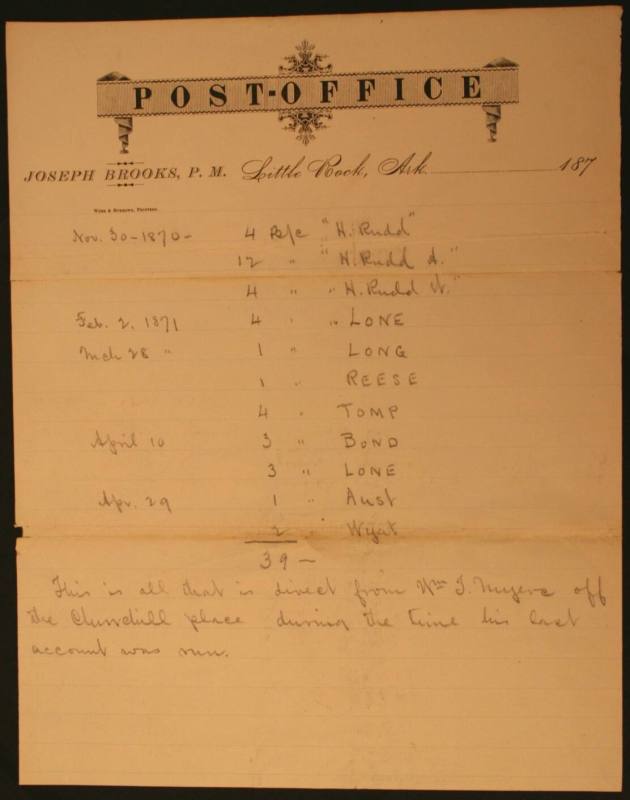 POST-OFFICE
JOSEPH BROOKS, P. M. Little Rock, Ark. 187
Nov. 30-1870- 4 B/c "H. Rudd"
12 " "H. Rudd A."
4 " " H. Rudd W."
Feb. 2, 1871 4 " " LONE
Mch 28 " 1 " LONG
1 " REESE
4 " TOMP
April 10 3 " BOND
3 " LONE
Apr. 29 1 " Aust
2 " Wyat
39 —
This is all that is direct from Wm J. Myers off
the Churchill place during the time his last
account was run.